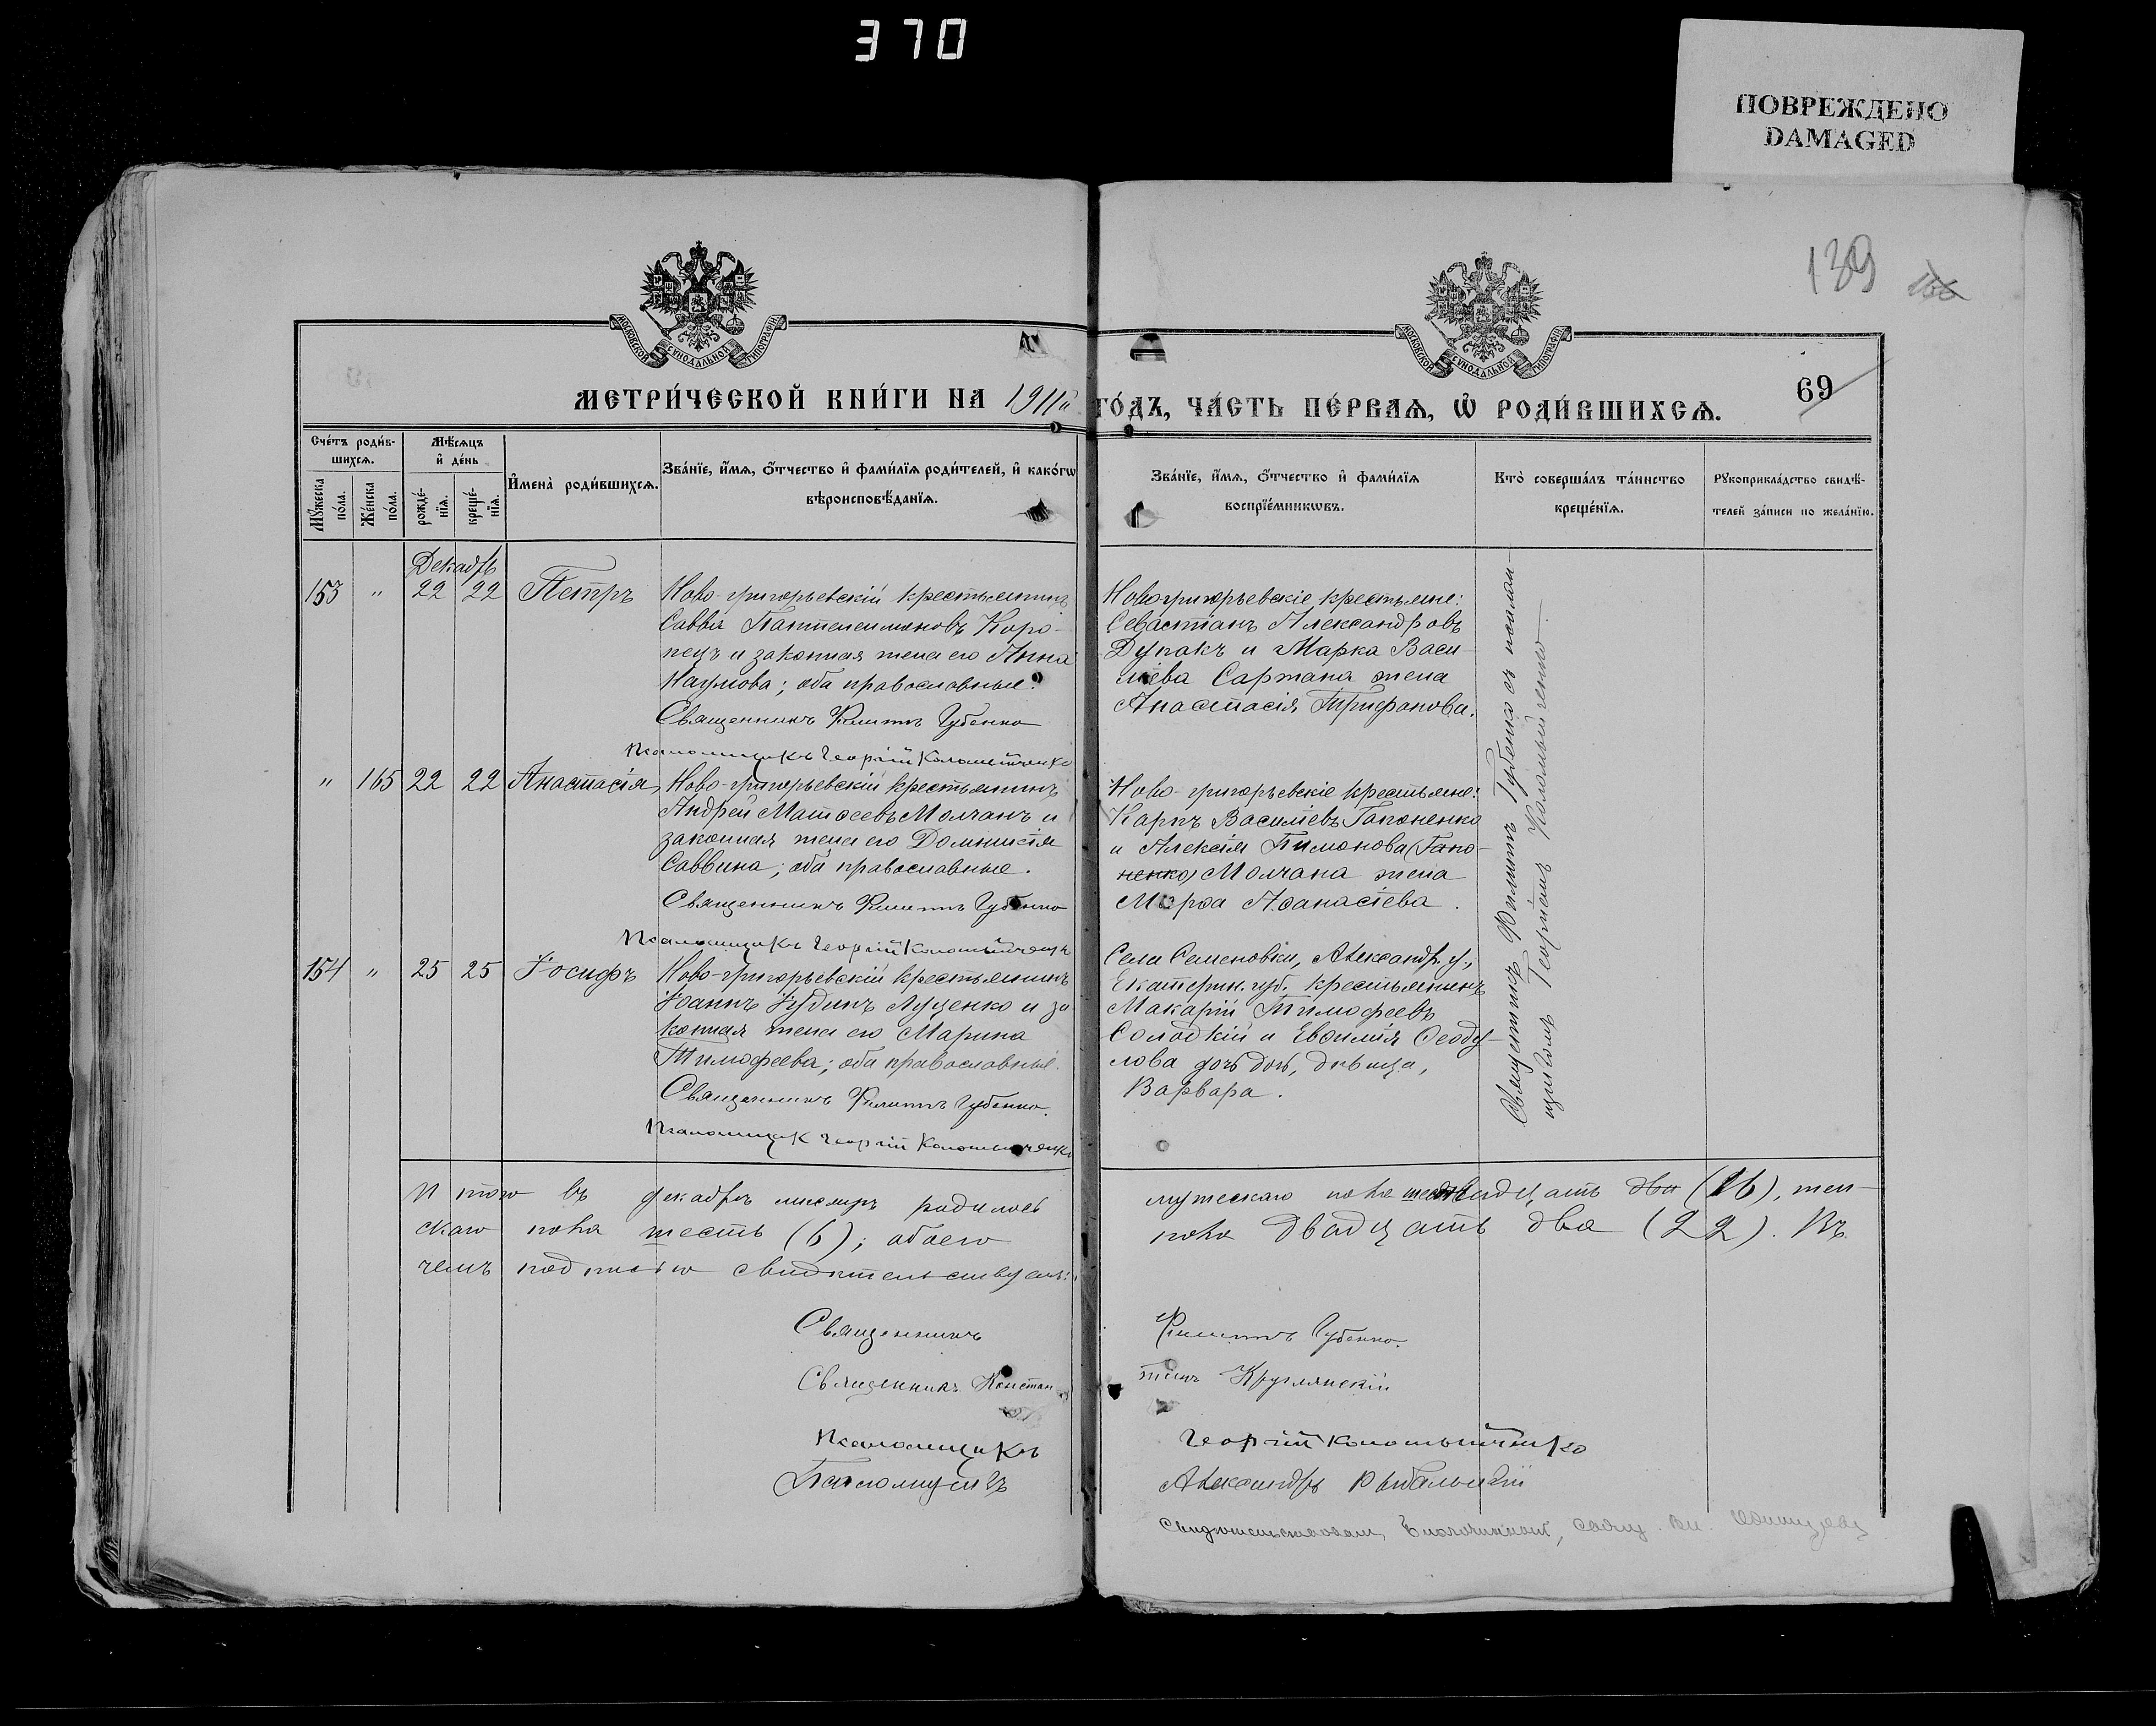 370
ПОВРЕЖДЕНО
DAMAGED
139
69
МОСКОВСКОЙ СѴНОДАЛЬНОЙ ТИПОГРАФІИ
МОСКОВСКОЙ СѴНОДАЛЬНОЙ ТИПОГРАФІИ
МЕТРИ́ЧЕСКОЙ КНИ́ГИ НА 1911й ГО́ДЪ, ЧА́СТЬ ПЕ́РВАѦ, Ѡ҆ РОДИ́ВШИХСѦ.
Сче́тъ роди́в-
шихсѧ.
Мꙋ́жеска
по́ла.
Же́нска
по́ла.
Мѣ́сѧцъ
и҆ де́нь
рожде́-
нїѧ.
креще́-
нїѧ.
И҆мена̀ роди́вшихсѧ.
Зва́нїе, и҆́мѧ, ѻ҆́тчество и҆ фами́лїѧ роди́телей, и҆ како́гѡ
вѣроисповѣ́данїѧ.
Зва́нїе, и҆́мѧ, ѻ҆́тчество и҆ фами́лїѧ
воспрїе́мникѡвъ.
Кто̀ соверша́лъ та́инство
креще́нїѧ.
Рꙋкоприкла́дство свидѣ́-
телей за́писи по жела́нїю.
Декабрь
153 " 22 22 Петръ
Ново-григорьевскій крестьянинъ
Савва Пантелеимоновъ Коро-
пецъ и законная жена его Анна
Наумова; оба православные.
Священникъ Филиппъ Губенко
Псаломщикъ Георгій Коломійченко
Новогригорьевскіе крестьяне:
Севастіанъ Александровъ
Дупакъ и Марка Васи-
ліева Сартана жена
Анастасія Трифонова.
" 165 22 22 Анастасія
Ново-григорьевскій крестьянинъ
Андрей Матѳеевъ Молчанъ и
законная жена его Домникія
Саввина; оба православные.
Священникъ Филиппъ Губенко
Псаломщикъ Георгій Коломійченко
Ново-григорьевскіе крестьяне:
Карпъ Василіевъ Гапоненко
и Алексія Пимонова (Гапо-
ненко) Молчана жена
Марѳа Аѳанасіева.
154 " 25 25 Іосифъ
Ново-григорьевскій крестьянинъ
Іоаннъ Іудинъ Луценко и за-
конная жена его Марина
Тимофеева; оба православные.
Священникъ Филиппъ Губенко.
Псаломщикъ Георгій Коломійченко
Села Семеновки, Александр. у.,
Екатерин. губ. крестьянинъ
Макарій Тимофеевъ
Солодкій и Евѳимія Ѳеоду-
лова дочь, дѣвица,
Варвара.
Священникъ Филиппъ Губенко съ псалом-
щикомъ Георгіемъ Коломійченко
Итого въ декабрѣ мѣсяцѣ родилось мужескаго пола шестнадцать (16), жен-
скаго пола шесть (6); обоего пола двадцать два (22). Въ
чемъ подписью свидѣтельствуемъ:
Священникъ Филиппъ Губенко.
Священникъ Константинъ Круглянскій
Псаломщикъ Георгій Коломійченко
Псаломщикъ Александръ Рыбальскій
Свидѣтельствовалъ, Благочинный, свящ. Вл.